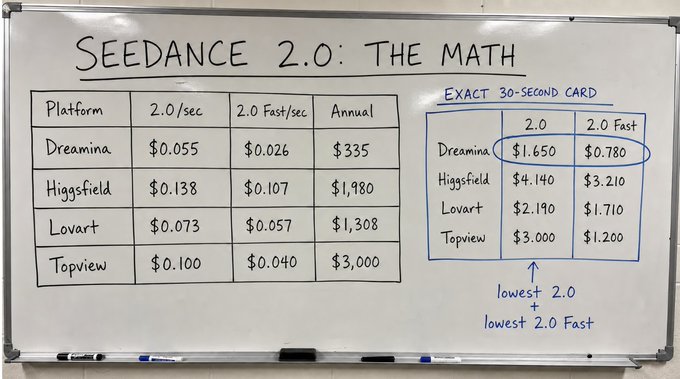 SEEDANCE 2.0: THE MATH
Platform 2.0/sec 2.0 Fast/sec Annual
Dreamina $0.055 $0.026 $335
Higgsfield $0.138 $0.107 $1,980
Lovart $0.073 $0.057 $1,308
Topview $0.100 $0.040 $3,000
EXACT 30-SECOND CARD
2.0 2.0 Fast
Dreamina $1.650 $0.780
Higgsfield $4.140 $3.210
Lovart $2.190 $1.710
Topview $3.000 $1.200
lowest 2.0
+
lowest 2.0 Fast